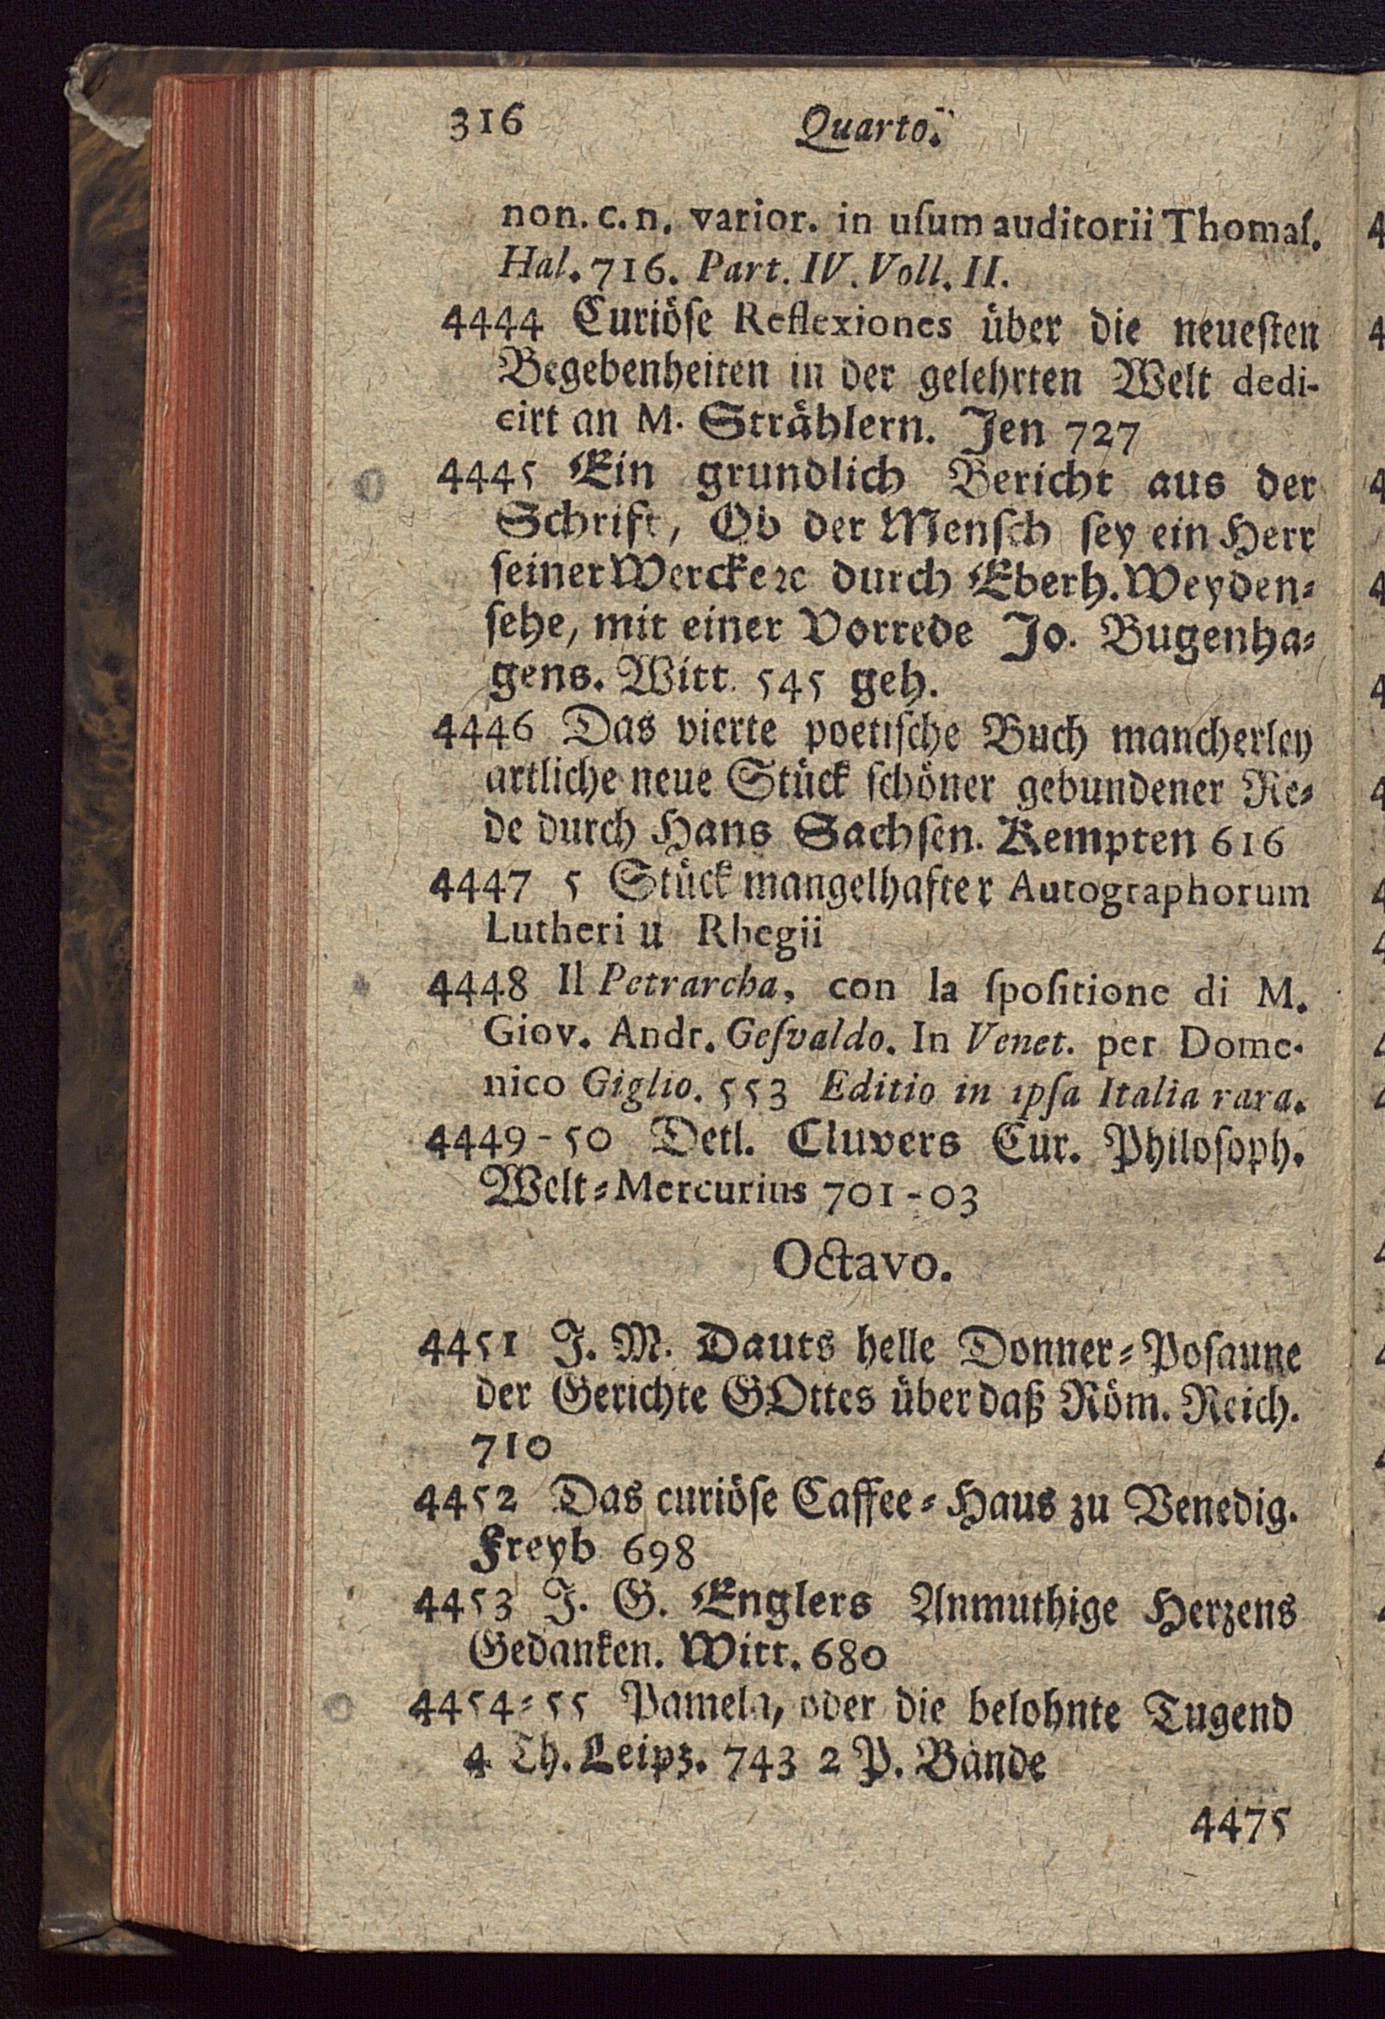 316 Quarto.
non. c. n. varior. in uſum auditorii Thomaſ.
Hal. 716. Part. IV. Voll. II.
4444 Curiöſe Reflexiones über die neueſten
Begebenheiten in der gelehrten Welt dedi-
cirt an M. Strählern. Jen 727
4445 Ein grundlich Bericht aus der
Schrift, Ob der Menſch ſey ein Herr
ſeiner Wercke ꝛc durch Eberh. Weyden⸗
ſehe, mit einer Vorrede Jo. Bugenha⸗
gens. Witt. 545 geh.
4446 Das vierte poetiſche Buch mancherley
artliche neue Stück ſchöner gebundener Re⸗
de durch Hans Sachſen. Kempten 616
4447 5 Stück mangelhafter Autographorum
Lutheri u Rhegii
4448 Il Petrarcha, con la ſpoſitione di M.
Giov. Andr. Geſvaldo. In Venet. per Dome-
nico Giglio. 553 Editio in ipſa Italia rara.
4449-50 Detl. Cluvers Cur. Philoſoph.
Welt⸗Mercurius 701-03
Octavo.
4451 J. M. Dauts helle Donner⸗Poſaune
der Gerichte GOttes über daß Röm. Reich.
710
4452 Das curiöſe Caffee⸗Haus zu Venedig.
Freyb 698
4453 J. G. Englers Anmuthige Herzens
Gedanken. Witt. 680
4454⸗55 Pamela, oder die belohnte Tugend
4 Th. Leipz. 743 2 P. Bände
4475